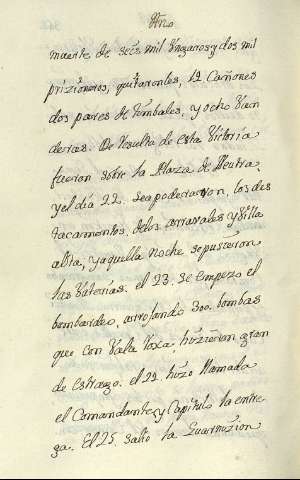 Año
muerte de seis mil Vngaros, y dos mil
prizioneros, quitaronles, 12 Cañones
dos pares de timbales, y ocho Van
deras. De Resulta de esta Victoria
fueron sobre la Plaza de Neutra,
y el dia 22. se apoderaron, los des
tacamentos, de los arravales y Villa
alta, y aquella noche se pusieron
las Vaterias. el 23. se empezo el
bombardeo, arrojando 300. bombas
que con Vala Roxa, hizieron gran
de estrago. el 24. hizo llamada
el Comandante, y Capitulo la entre
ga. El 25. salio la Guarnizion